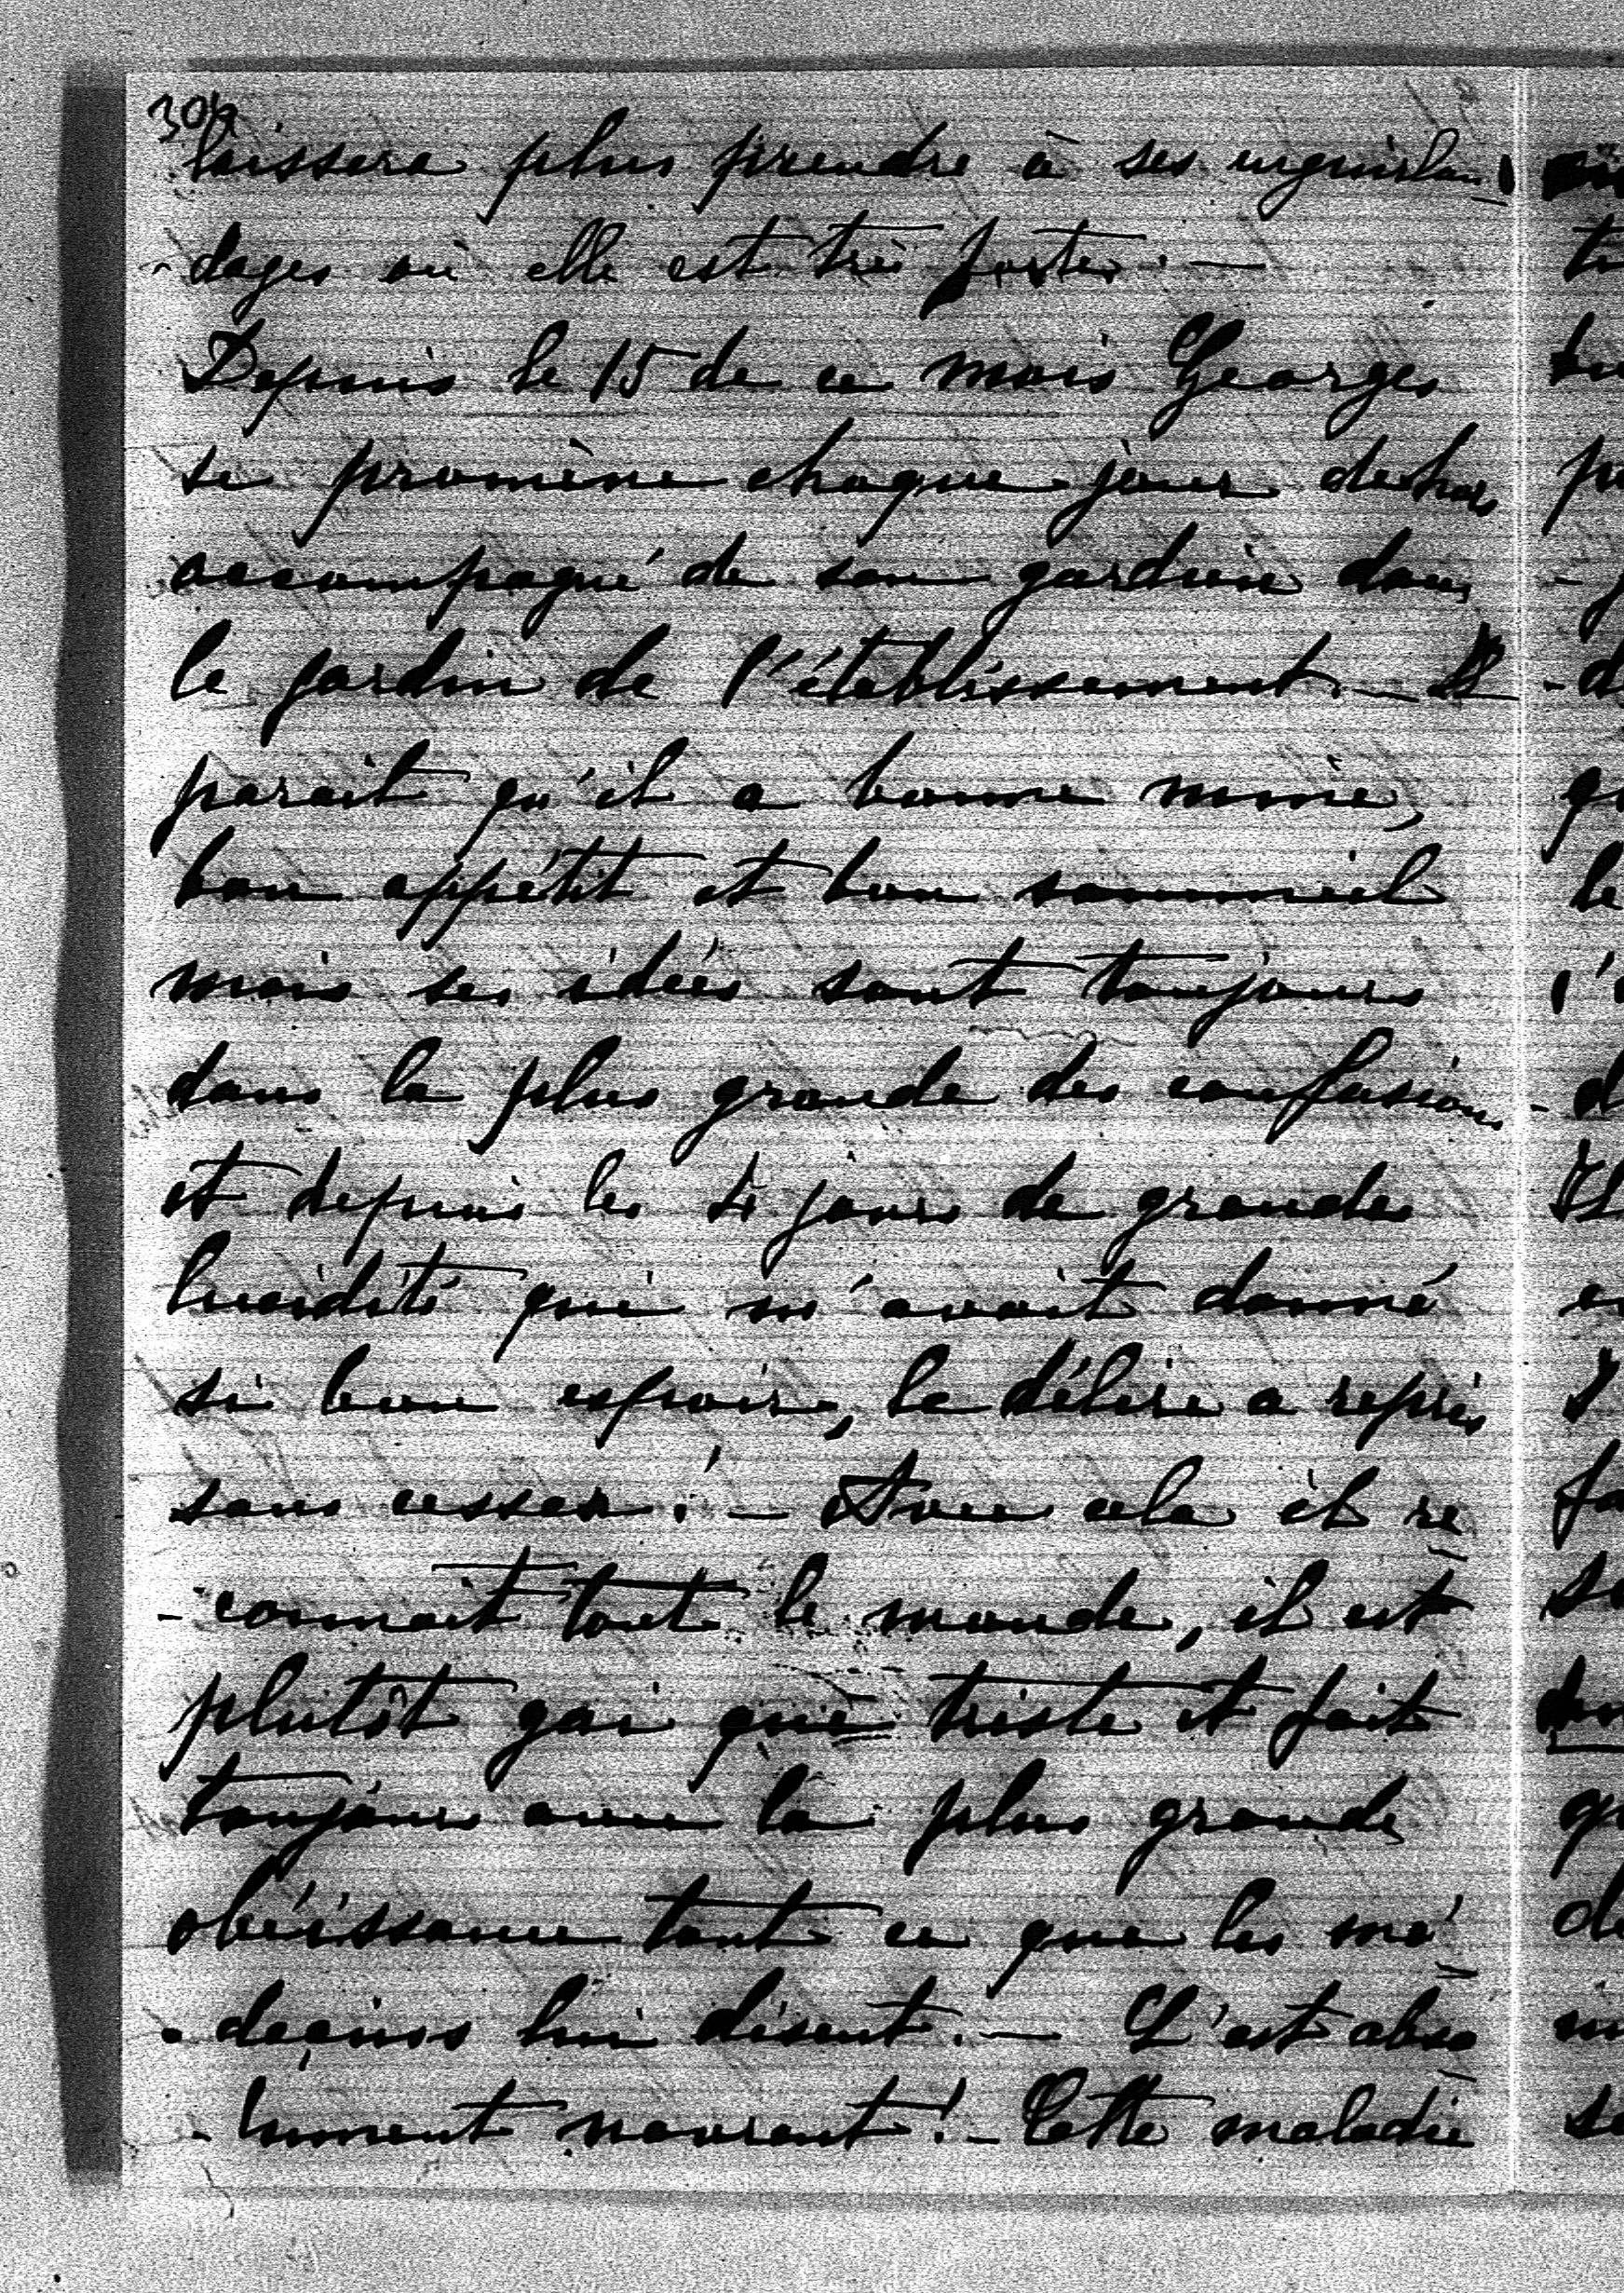 304
laissera plus prendre à ses enguirlan-
-dages où elle est très forte. —
Depuis le 15 de ce mois Georges
se promène chaque jour dehors
accompagné de son gardien dans
le jardin de l'établissement. — Il
parait qu'il a bonne mine,
bon appétit et bon sommeil
mais ses idées sont toujours
dans la plus grande des confusions
et depuis les 4 jours de grande
lucidité qui m'avait donné
si bon espoir, le délire a repris
sans cesser! — Avec cela il re-
-connait tout le monde, il est
plutôt gai que triste et fait
toujours avec la plus grande
obéissance tout ce que les mé-
-decins lui disent. — C'est abso-
-lument navrant! — Cette maladie